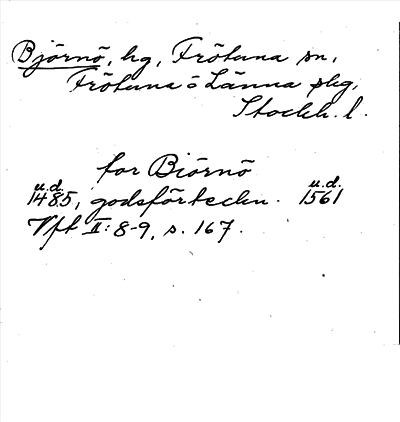 Björnö, hg, Frötuna sn,
Frötuna o Länna skg,
Stockh. l.
for Biörnö
u.d. u.d.
1485, godsförteckn. 1561
Vft II: 8-9, s. 167.